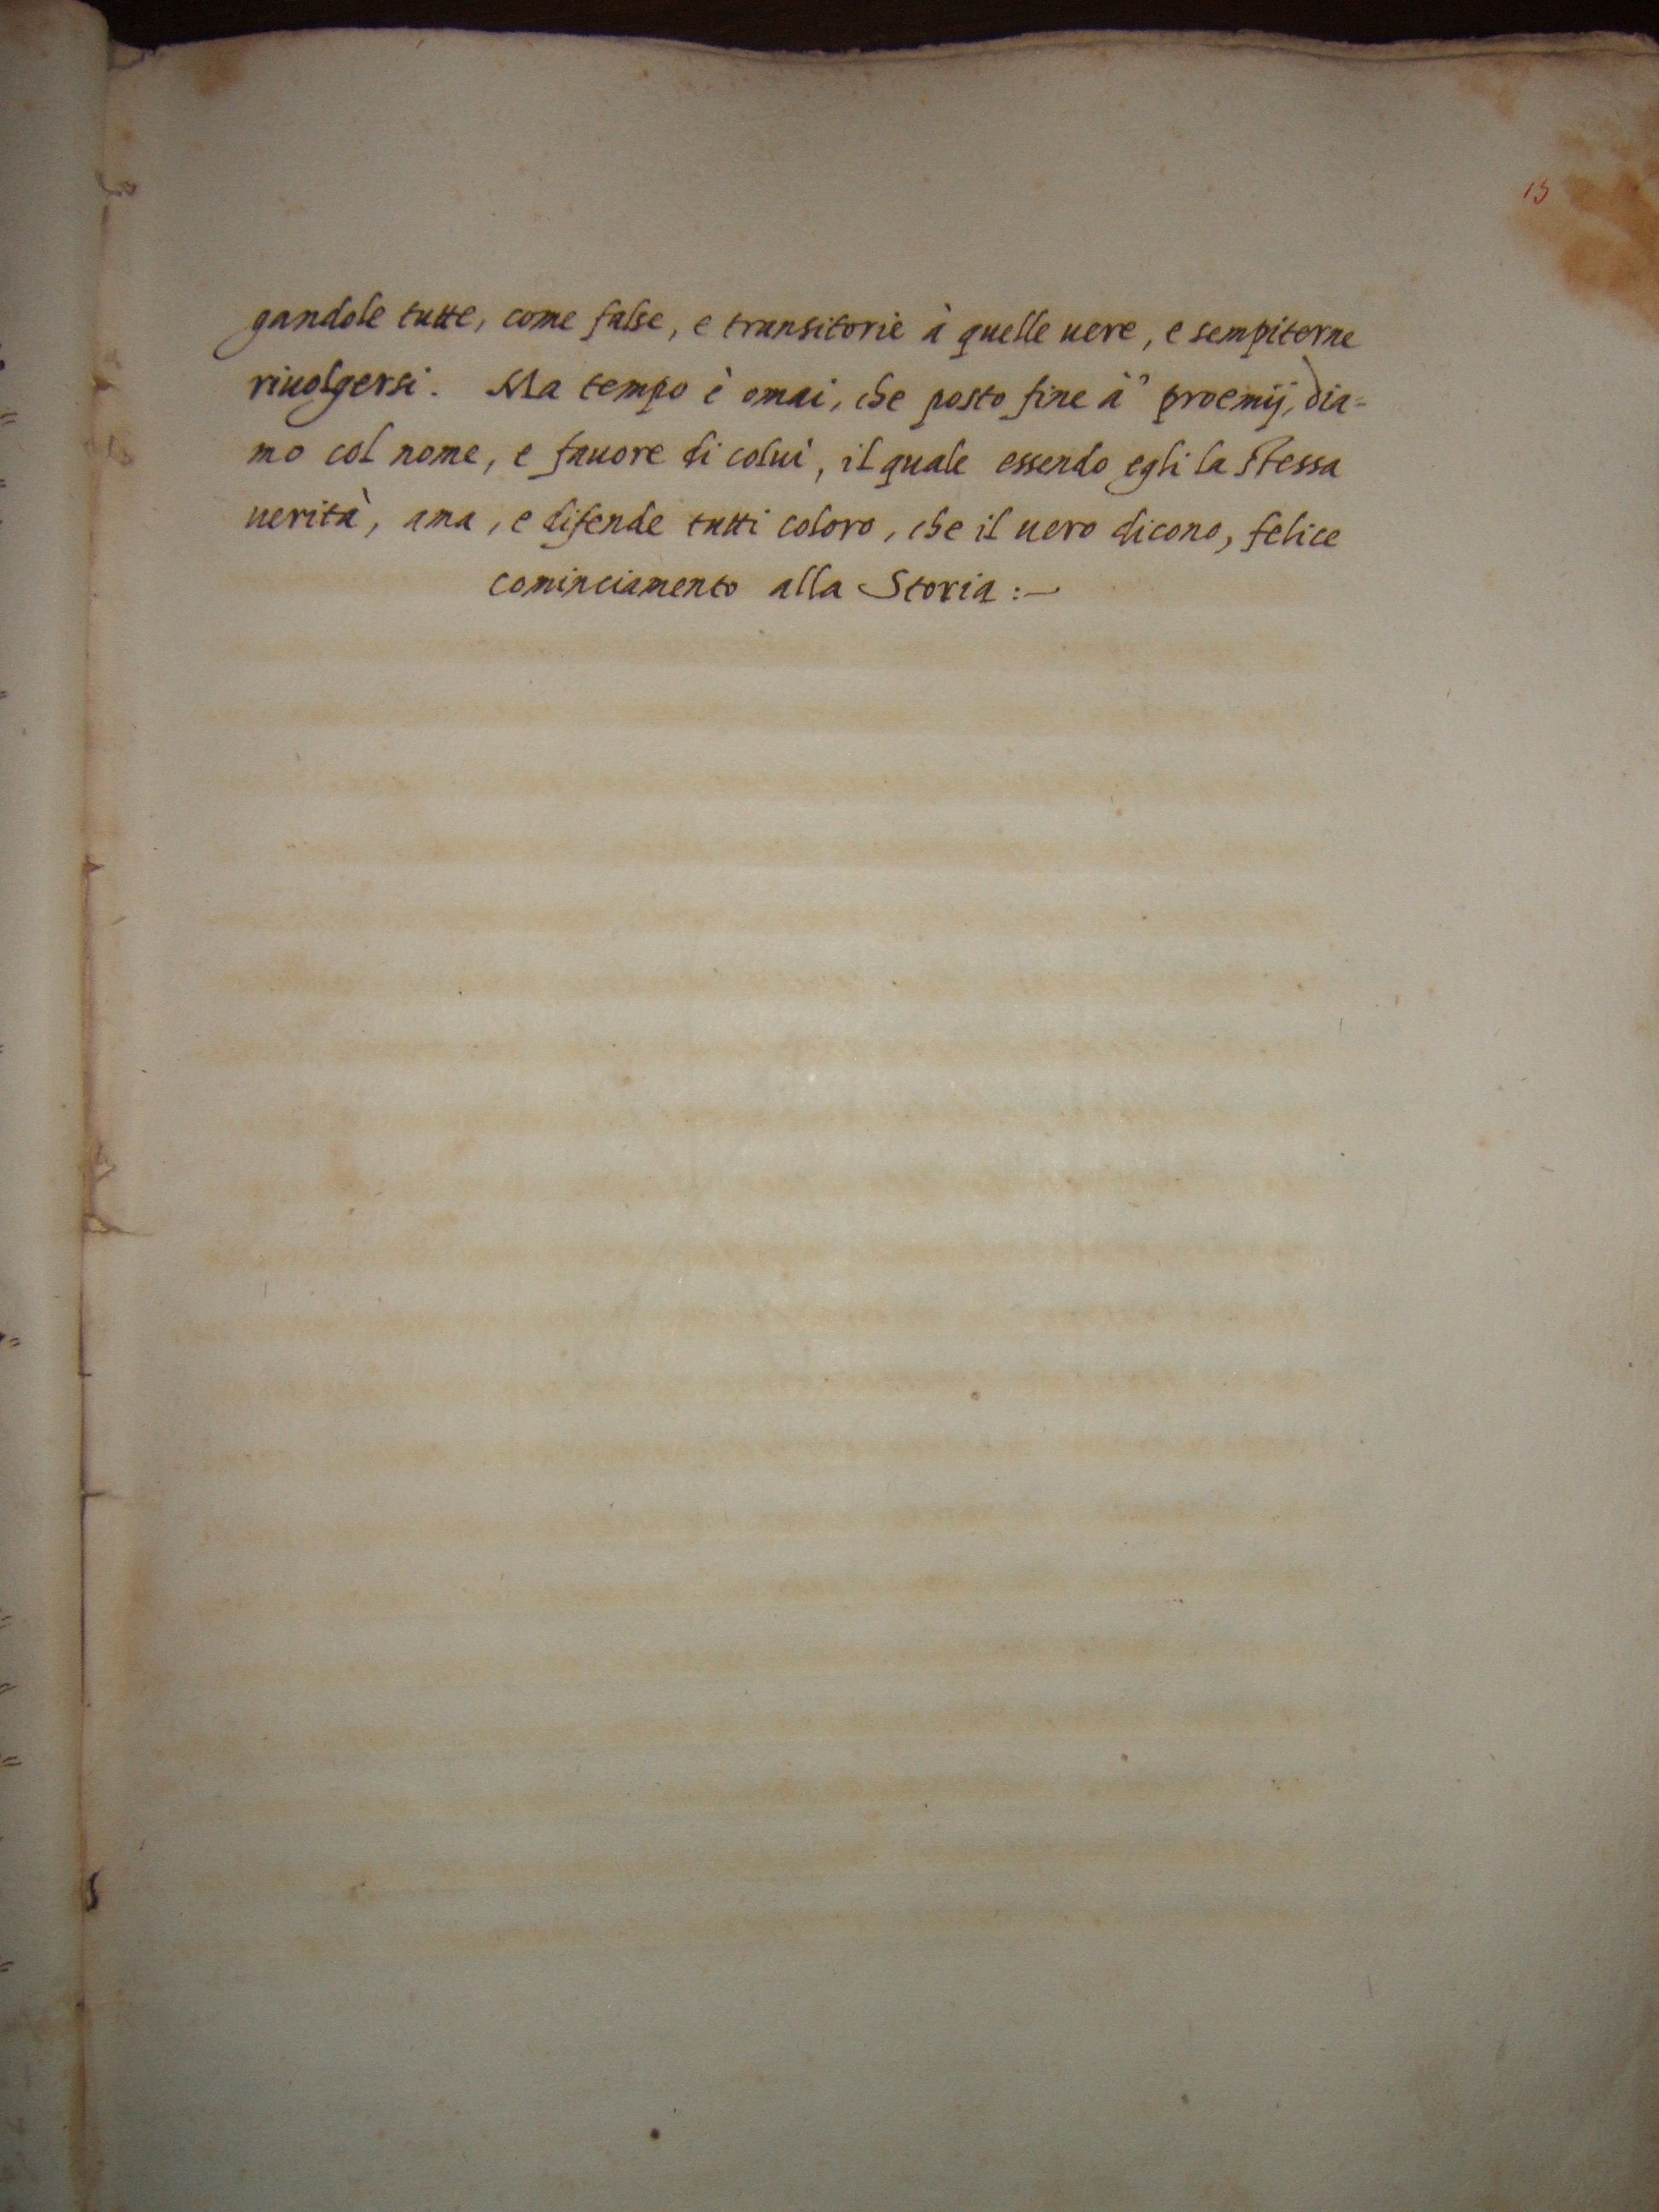 15
gandole tutte, come false, e transitorie à quelle uere, e sempiterne
riuolgersi. Ma tempo è omai, che posto fine à' proemij, dia=
mo col nome, e fauore di colui, il quale essendo egli la stessa
uerità, ama, e difende tutti coloro, che il uero dicono, felice
cominciamento alla Storia :—